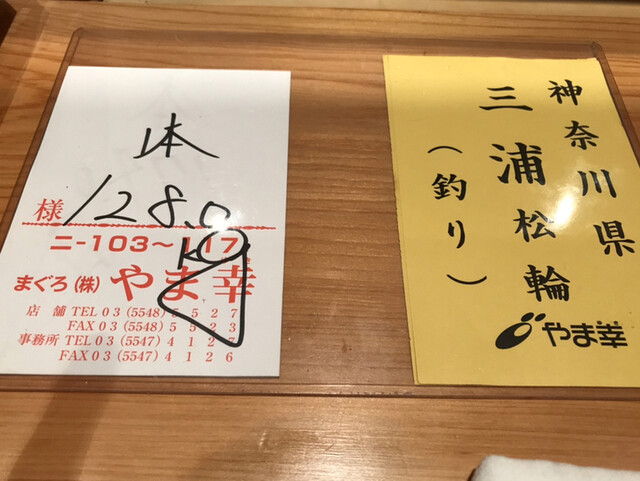 本
128.0
kg
様
ニ-103〜117
まぐろ(株)やま幸
店舗 TEL 03 (5548) 5527
FAX 03 (5548) 5523
事務所 TEL 03 (5547) 4127
FAX 03 (5547) 4126
神奈川県
三浦松輪
(釣り)
やま幸